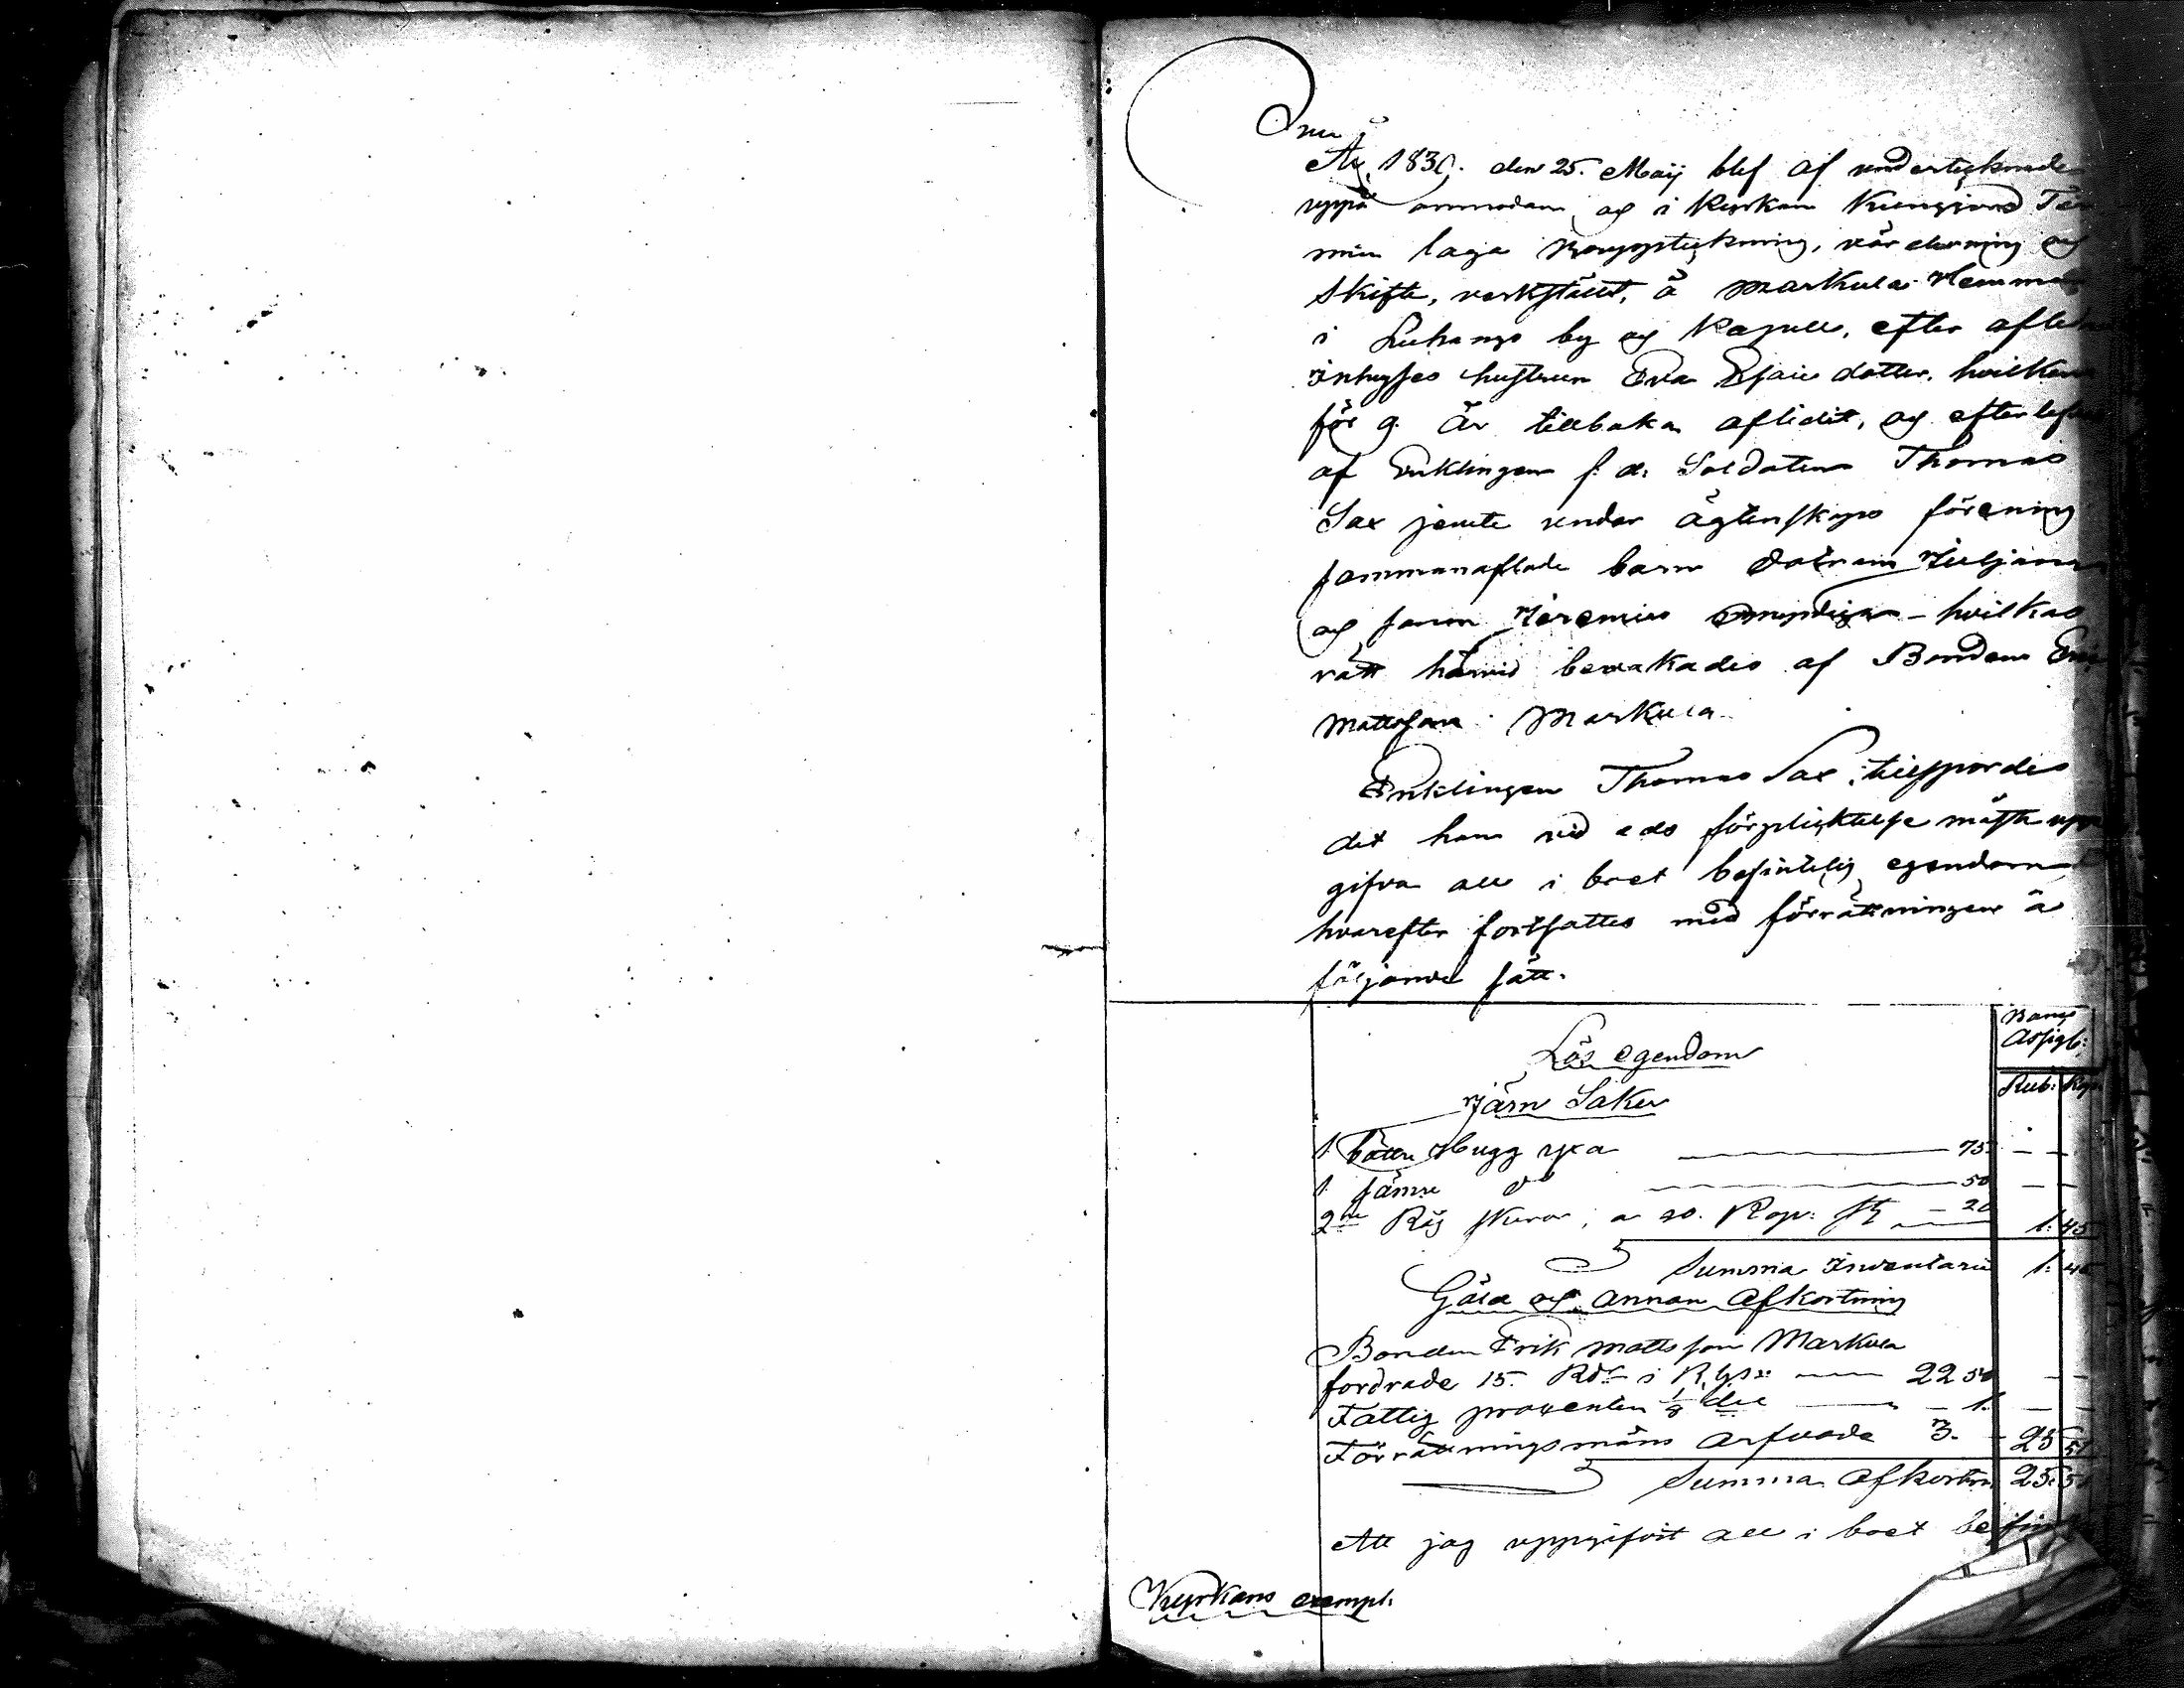 År 1836. den 25. Maij blef af undertecknade
uppå anmodan, og i Kyrkan Kungjord Ter
min laga Bouppteckning, värdering og
Skifte, verkställt, å Markula Hemman
i Luhango by og Kapell, efter aflidne
Inhyses hustrun Eva Esaiedotter, hvilken
för 9. År tillbaka aflidit, og efterlefves
af Enklingen f: d: Soldaten Thomas
Sax jemte under ägtenskaps förening
sammanaflade barn dotren Juljana
og sonen Jeremias omyndiga – hvilkas
rätt härvid bevakades af Bonden Erik
Mattsson Markula.
Enklingen Thomas Sax, tillspordes
det han vid eds förpligtelse måste upp
gifva all i boet befintelig egendom
hvarefter fortsattes med förrättningen å
följande sätt.
Banco Assigt:
Lös egendom
Rub: Kop
Järn Saker
1 bättre Hugg yxa 75. – –
1 sämre do 50 – –
2ne Råg skäror, a 10. Kop: St – 20 1: 45
Summa Inventarii 1: 45
Gäld og annan Afkortning
Bonden Erik Mattsson Markula
fordrade 15. Rdr i Rgs: 22 50 – –
Fattig procenten 1/8 del – 1. – –
Förrättningsmäns arfvode 3. – 25 51
Summa Afkortn 25: 51
Att jag uppgifvit all i boet befin
Kyrkans exempl.